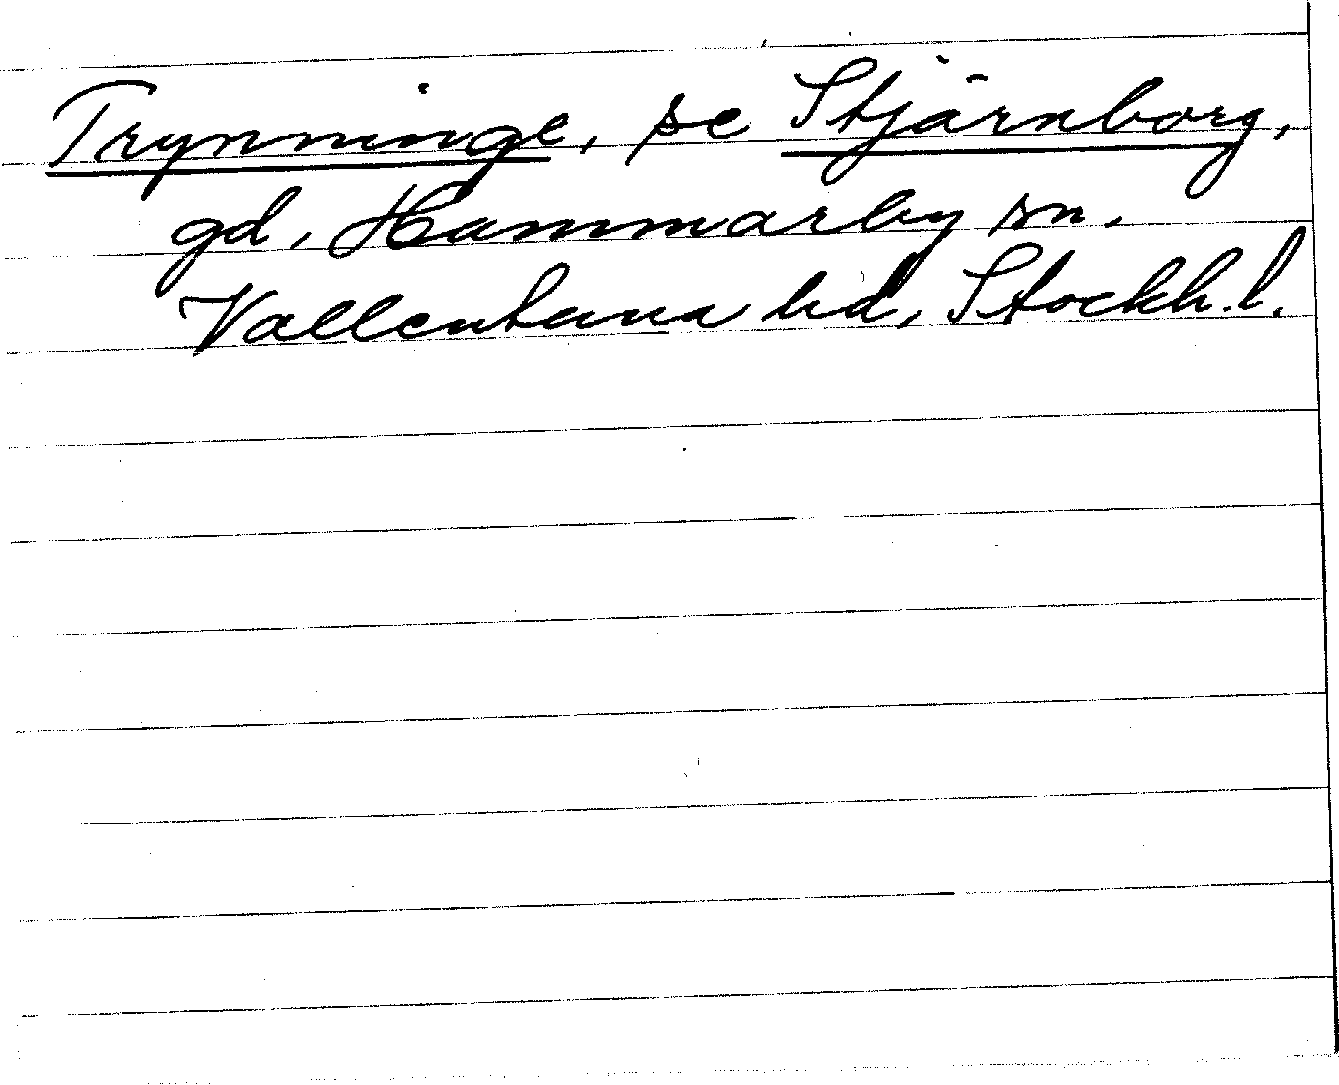 Trynninge, se Stjärnborg,
gd, Hammarby sn.
Vallentuna hd, Stockh. l.